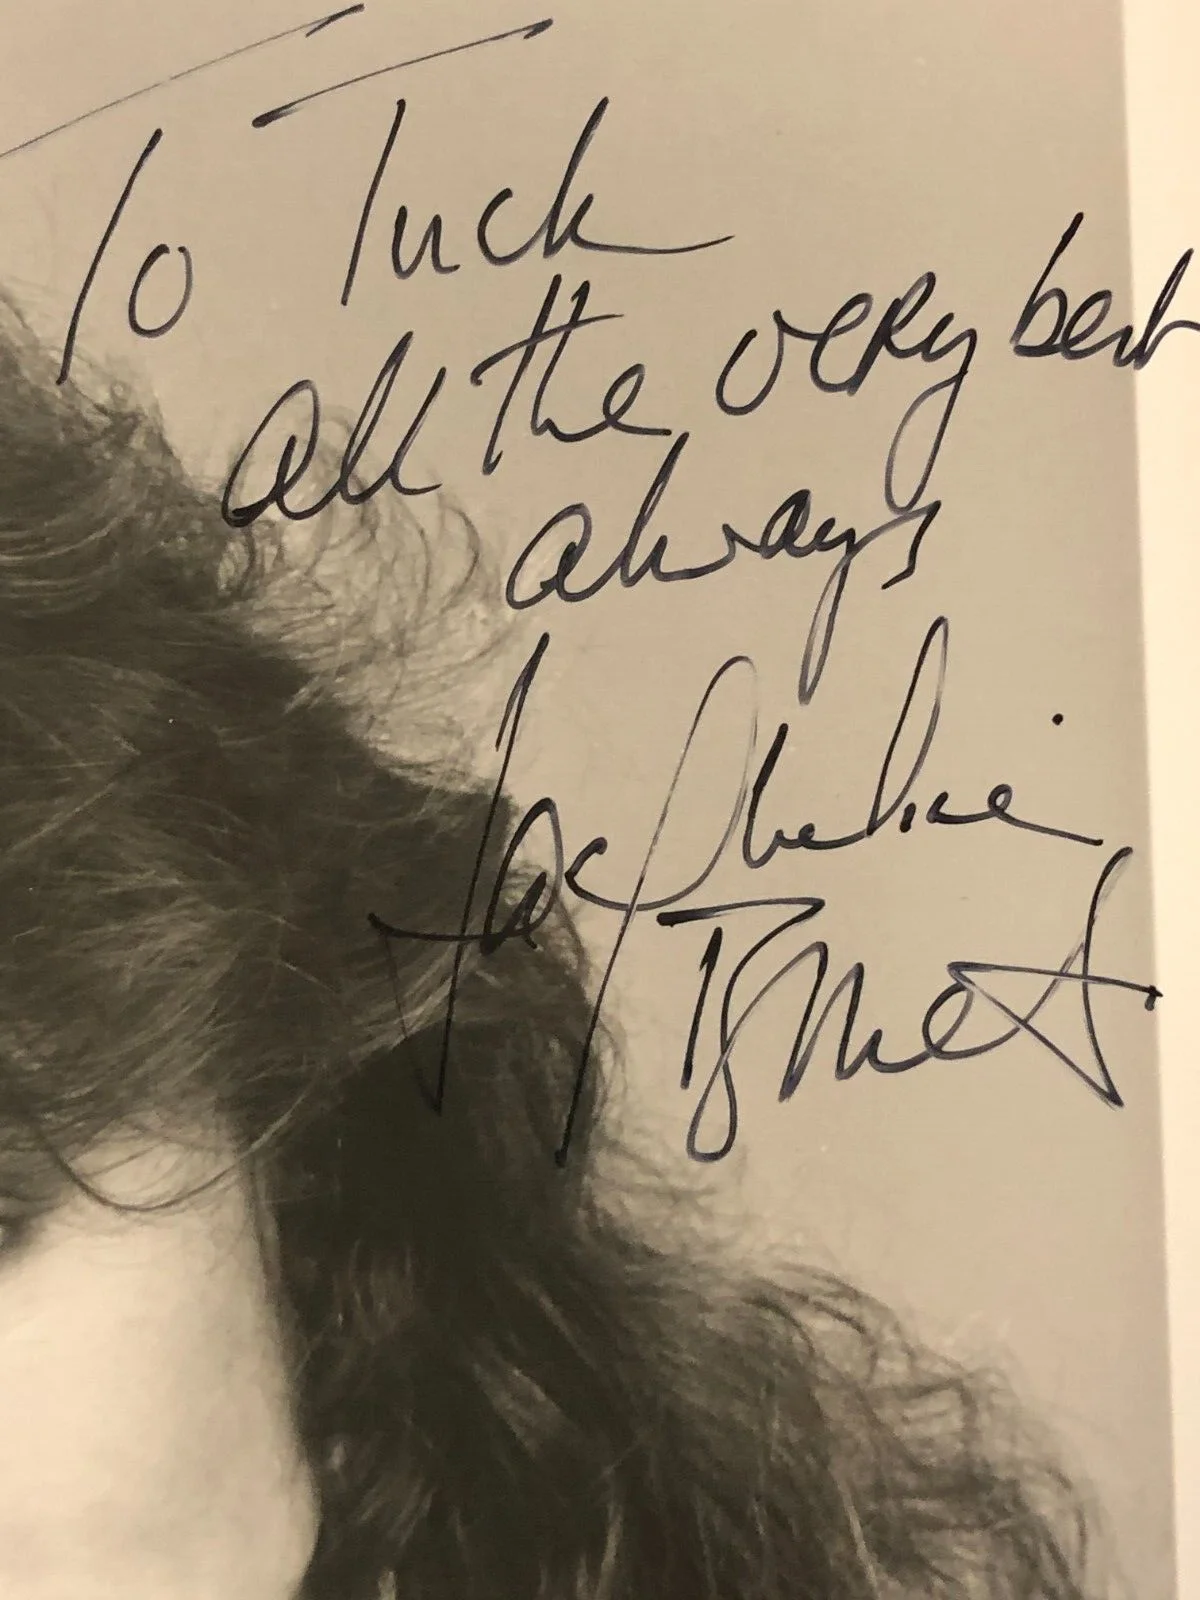 To Tuck
all the very best
always
Jacqueline
Bisset